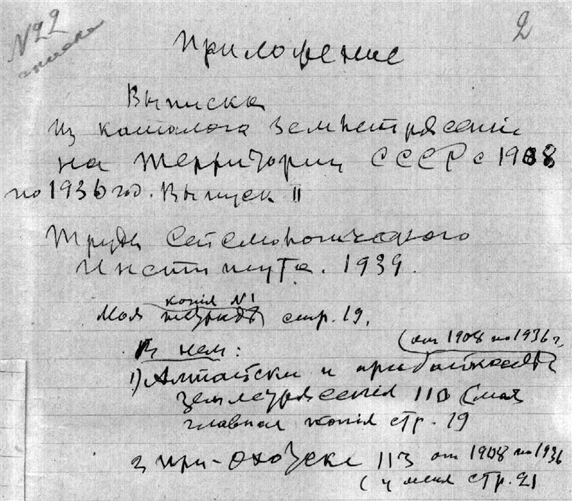 №22
2
Приложение
Выписка
из каталога землетрясений
на территории СССР с 1908
по 1936 год. Выпуск II
Труды Сейсмологического
Института. 1939.
копия №1
Моя тетрадь стр. 19.
В нем:
(от 1908 по 1936 г.
1) Алтайски и прибайкальск
землетрясения 110 (моя
главная копия стр. 19
2 при-охотске 113 от 1908 по 1936
(у меня стр. 21